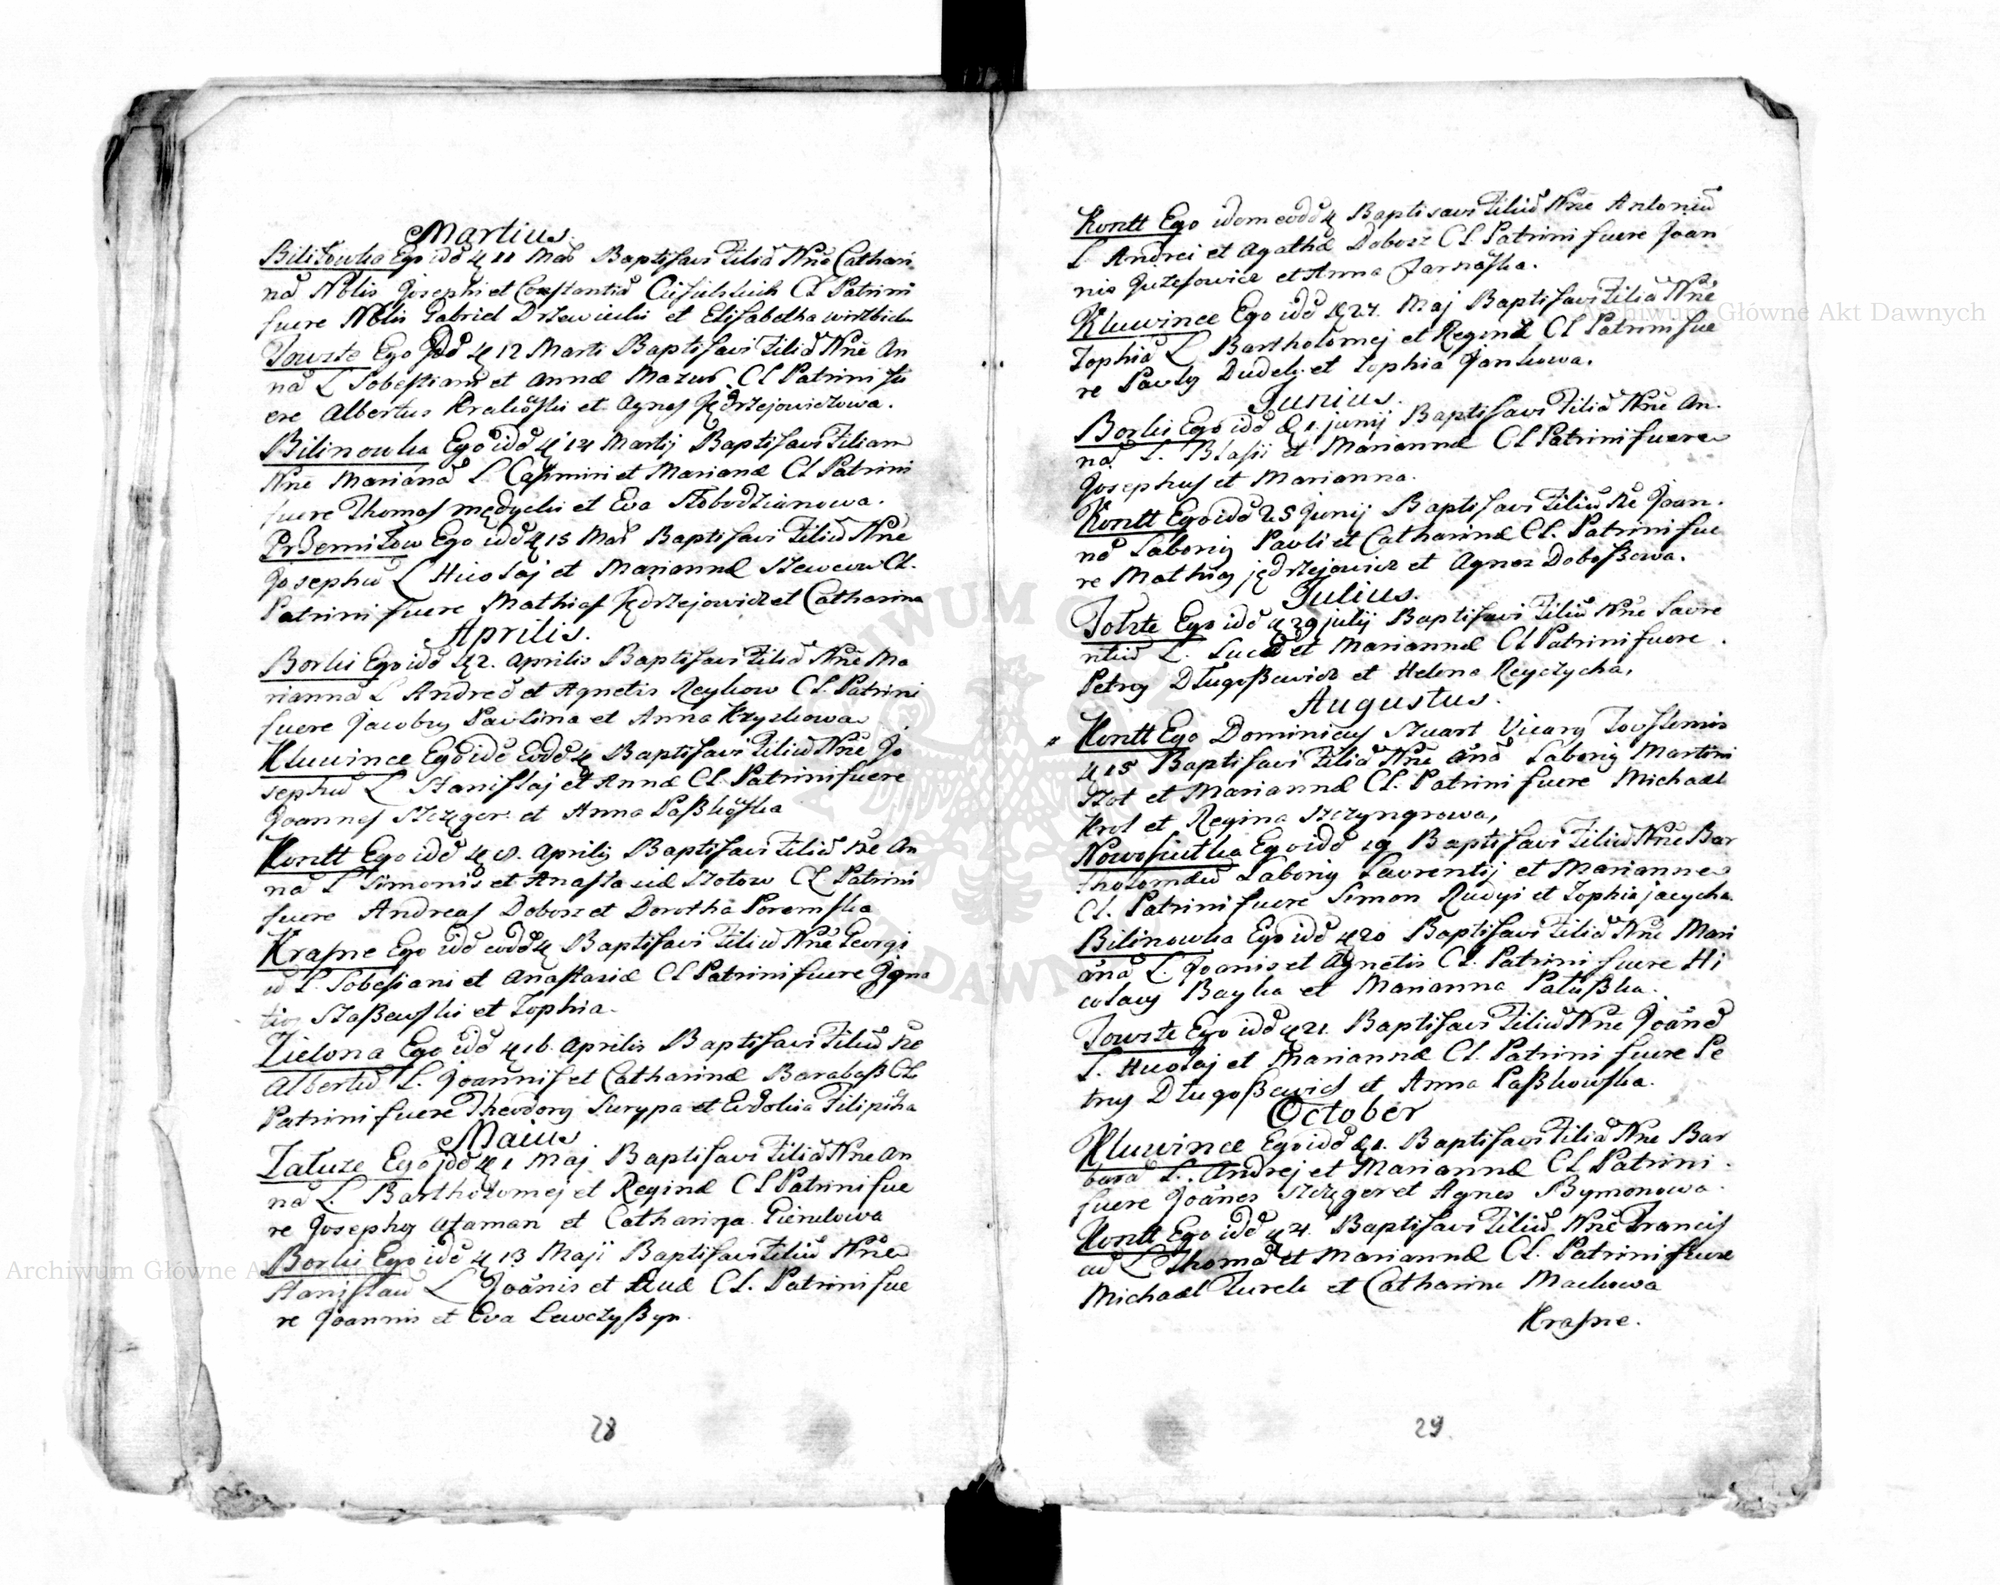 Martius.
Bilitowka Ego idē 11 Mar Baptisavi Filiā Nnē Cathari
nā Nblis Josephi et Constantiā Ciesielskich CL Patrini
fuere Nblis Gabriel Drzewiecki et Elisabetha wirzbicka
Towste Ego Jdē 12 Marti Baptisavi Filiā Nnē An
nā L Sobestiani et Annæ Mazur CL Patrini fu
ere Albertus Krakōski et Agnes Jędrzejowiczowa.
Bilinowka Ego idē 14 Martij Baptisavi Filiam
Nnē Mariānā L. Casimiri et Marianæ CL Patrini
fuere Thomas mędycki et Eva Słobodzianowa.
Przemiłow Ego idē 15 Mar Baptisavi Filiū Nnē
Josephū L Nicolaj et Mariannæ Szewcow CL.
Patrini fuere Mathias Jędrzejowicz et Catharina
Aprilis.
Borki Ego idē 2. Aprilis Baptisavi Filiā Nnē Ma
riannā L Andreæ et Agnetis Reykow CL. Patrini
fuere Jacobus Pavlina et Anna Kryszkowa
Kluwince Ego idē eodē Baptisavi Filiū Nnē Jo
sephū L Stanislaj et Annæ CL. Patrini fuere
Joannes et Anna Paszkōska
Kontt Ego idē 8. Aprilis Baptisavi Filiā Nnē An
nā L Simonis et Anastasiæ Szotow CL Patrini
fuere Andreas Dobosz et Dorotha Poremska
Krasne Ego idē eodē Baptisavi Filiū Nnē Georgi
ū L. Sobestiani et Anastasiæ CL Patrini fuere Jgna
tius Staszewski et Zophia.
Zielona Ego idē 16. Aprilis Baptisavi Filiū Nnē
Albertū L. Joannis et Catharinæ Barabasz CL
Patrini fuere Theodorus Surypa et Evdokia Filipicha
Maius
Zaluze Ego jdē 1 Maj Baptisavi Filiā Nnē An
nā L. Bartholomej et Reginæ CL Patrini fue
re Josephus Ataman et Catharina
Borki Ego idē 13 Maji Baptisavi Filiū Nnē
Stanislaū L Joānis et Evæ CL. Patrini fue
re Joannis et Eva Lewczyszyn.
28
Kontt Ego idem eodē Baptisavi Filiū Nnē Antoniū
L Andrei et Agathæ Dobosz CL Patrini fuere Joan
nis Juzefowicz et Anna Jarnaska.
Kluwince Ego idē 27. Maj Baptisavi Filiā Nnē
Zophiā L Bartholomej et Reginæ CL Patrini fue
re Pavlus Dudek et Zophia Jankowa.
Junius.
Borki Ego idē 1. junij Baptisavi Filiā Nnē An
nā L. Blasii et Mariannæ CL Patrini fuere
Josephus et Marianna.
Kontt Ego idē 25 Junij Baptisavi Filiū Nē Joan
nē Laborius Pavli et Catharinæ CL. Patrini fue
re Mathias jędrzejowicz et Agnes Doboszowa.
Julius.
Tolste Ego idē 29 julij Baptisavi Filiū Nnē Lavre
ntiū L. Lucæ et Mariannæ CL Patrini fuere
Petrus Długoszewicz et Helena Reyczycha.
Augustus.
Kontt Ego Dominicus Stuart Vicarius Tovstensis
15 Baptisavi Filiā Nnē Anā Laborius Martini
Szot et Mariannæ CL. Patrini fuere Michael
Krol et Regina Szczyngrowa,
Nowosiułka Ego idē 19 Baptisavi Filiū Nnē Bar
tholomæū Laborius Laurentij et Mariannæ
CL. Patrini fuere Simon Rudyi et Zophia jacycha
Bilinowka Ego idē 20 Baptisavi Filiā Nnē Mari
ānā L. Joanis et Agnetis CL. Patrini fuere Ni
colaus Bayka et Marianna Patuszka.
Towste Ego idē 21. Baptisavi Filiū Nnē Joānē
L. Nicolaj et Mariannæ CL Patrini fuere Pe
trus Długoszewicz et Anna Paszkowska.
October
Kluwince Ego idē 1. Baptisavi Filiā Nnē Bar
barā L. Andrej et Mariannæ CL Patrini
fuere Joānes et Agnes Szymonowa.
Kontt Ego idē 4. Baptisavi Filiū Nnē Francis
cū L Thomæ et Mariannæ CL. Patrini fuere
Michael Turek et Catharina Mackowa
Krasne.
29
Archiwum Główne Akt Dawnych
Archiwum Główne Akt Dawnych
ARCHIWUM GŁÓWNE AKT DAWNYCH